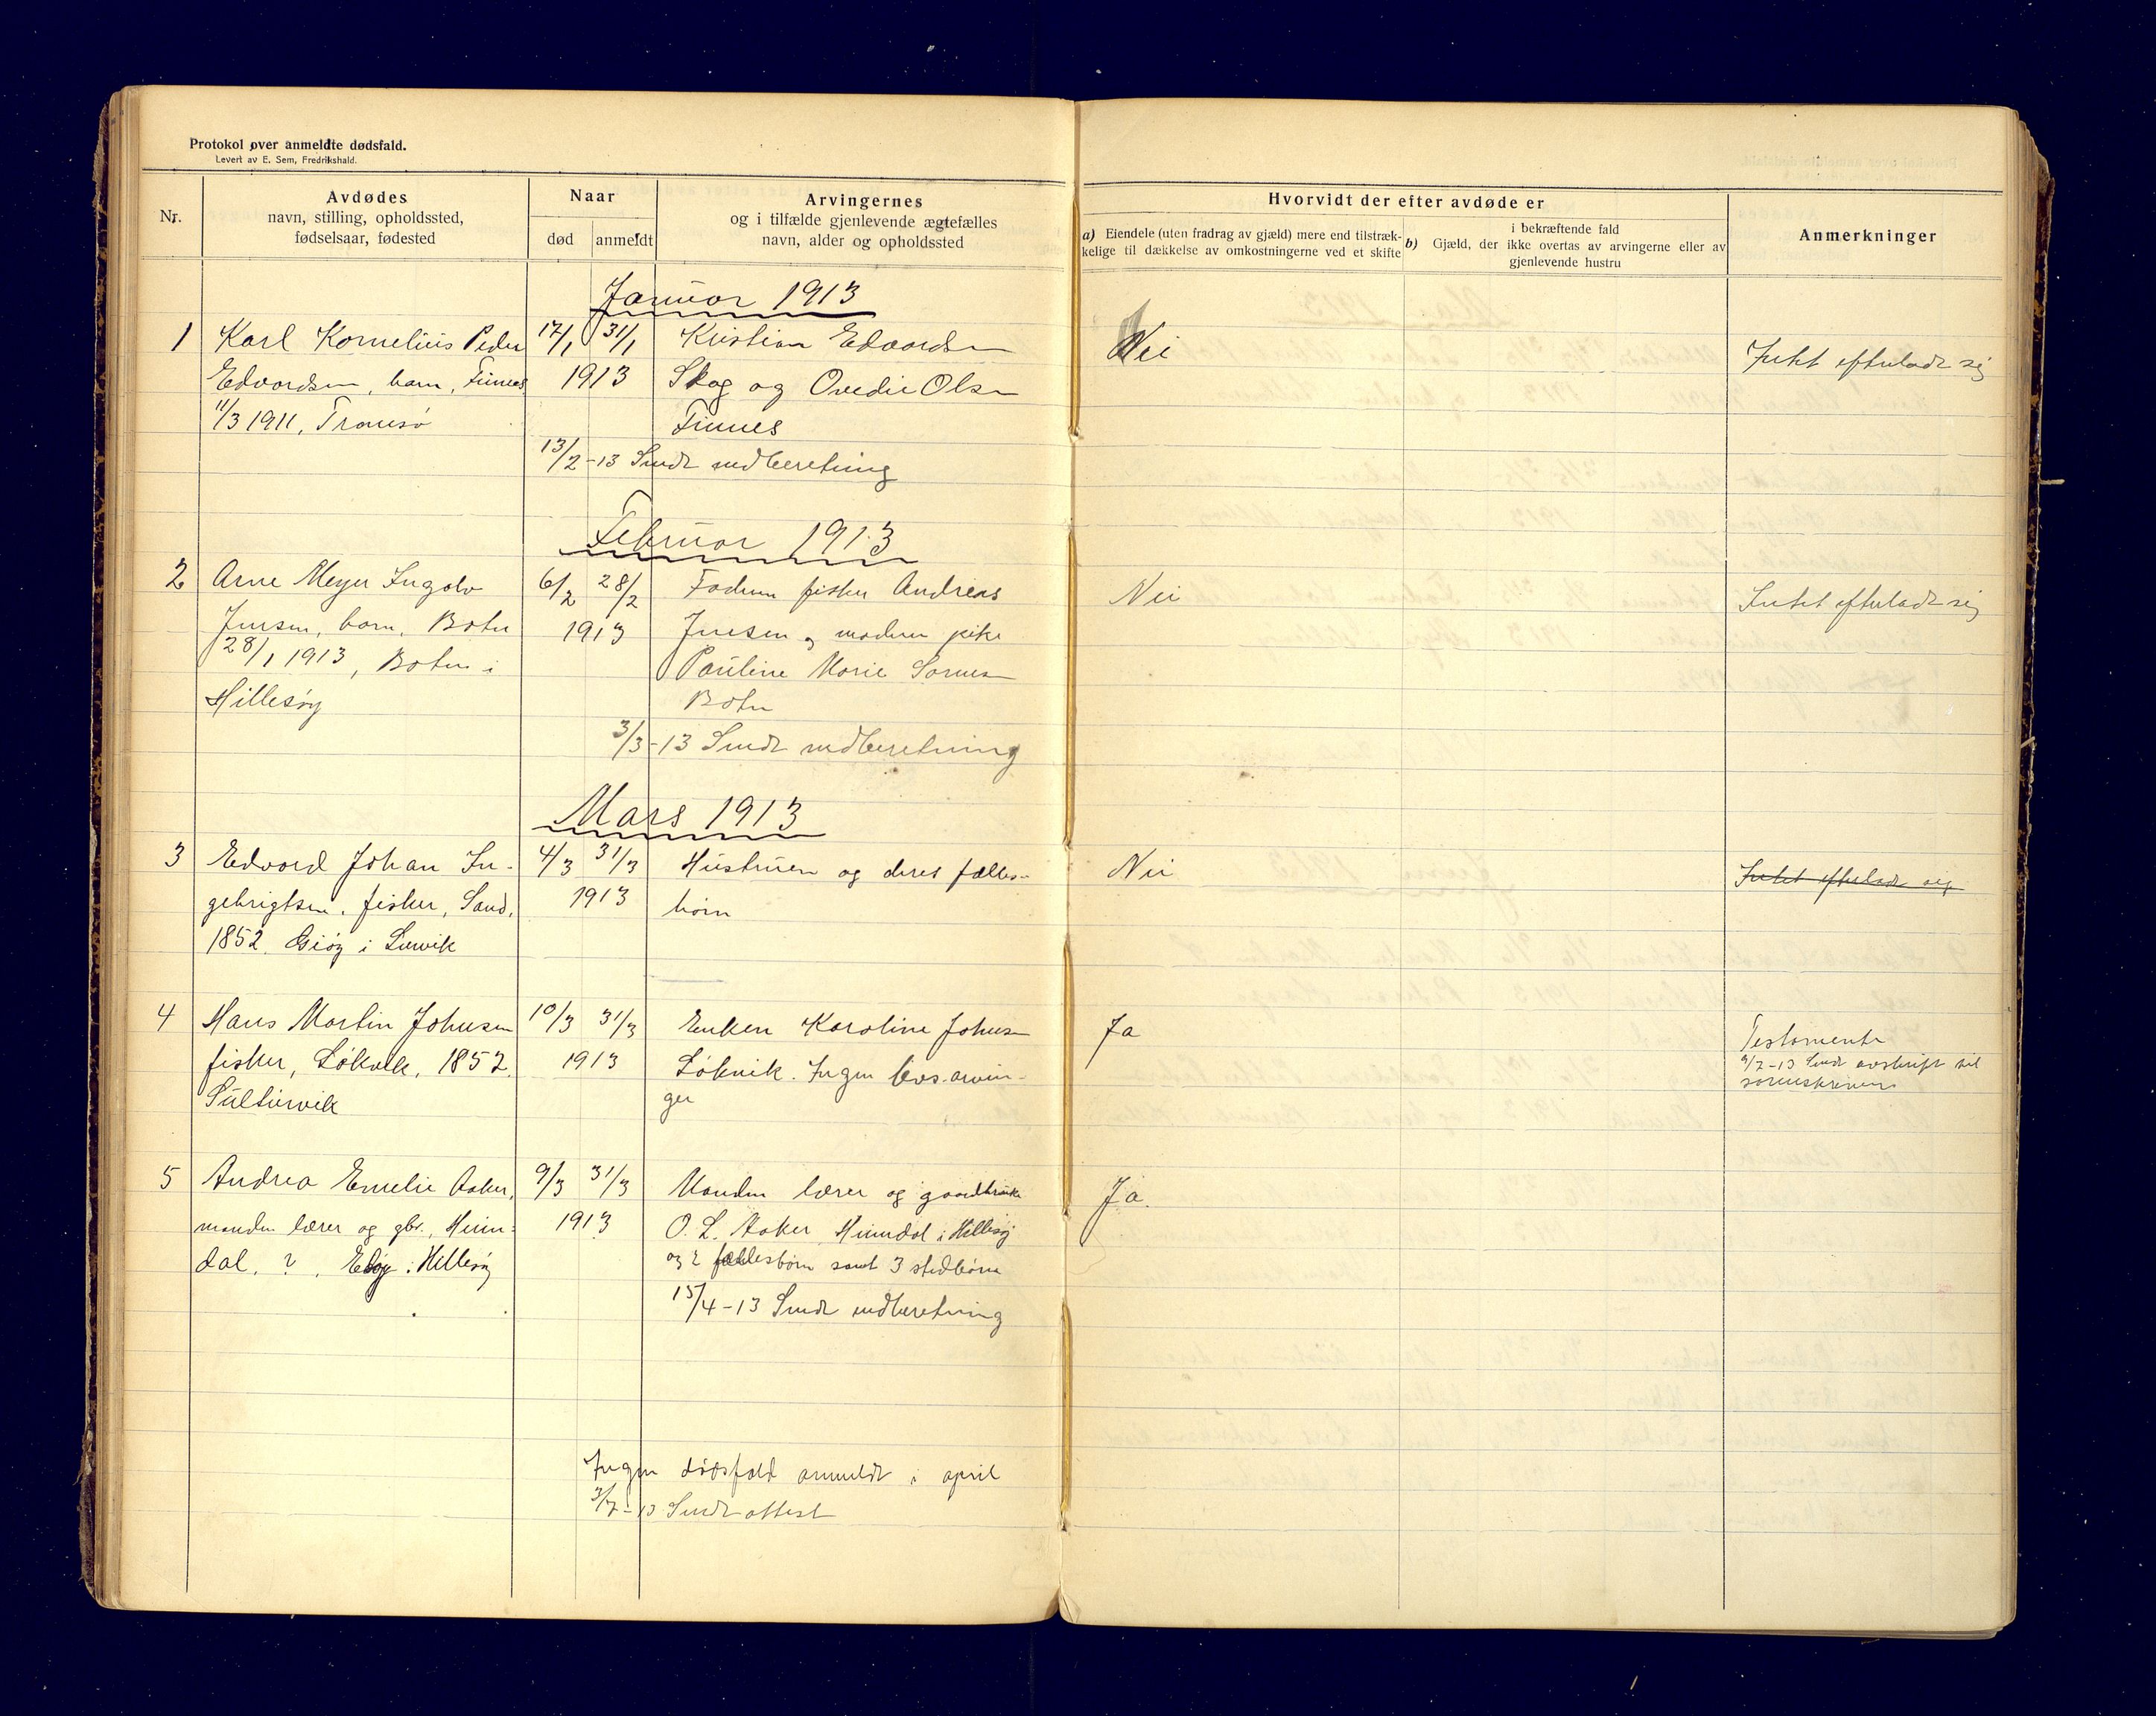 Protokol over anmeldte dødsfald.
Levert av E. Sem, Fredrikshald.
Nr.
Avdødes
navn, stilling, opholdssted,
fødselsaar, fødested
Naar
død
anmeldt
Arvingernes
og i tilfælde gjenlevende ægtefælles
navn, alder og opholdssted
Hvorvidt der efter avdøde er
a) Eiendele (uten fradrag av gjæld) mere end tilstræk-
kelige til dækkelse av omkostningerne ved et skifte
i bekræftende fald
b) Gjæld, der ikke overtas av arvingerne eller av
gjenlevende hustru
Anmerkninger
Januar 1913
1 Karl Kornelius Peder 17/1 31/1 Kristian Edvardsen Nei Intet efterladt sig
Edvardsen, barn, Finnes, 1913 Skog og Ovedie Olsen
11/3 1911, Tromsø Finnes
13/2-13 Sendt indberetning
Februar 1913
2 Arne Meyer Ingolv 6/2 28/2 Faderen fisker Andreas Nei Intet efterladt sig
Jensen, barn, Botn 1913 Jensen og moderen pike
28/1 1913, Botn i Pauline Marie
Hillesøy Botn
3/3-13 Sendt indberetning
Mars 1913
3 Edvard Johan In- 4/3 31/3 Hustruen og deres fælles- Nei Intet efterladt sig
gebrigtsen, fisker, Sand, 1913 børn
1852. i Lenvik
4 Hans Martin Johnsen 10/3 31/3 Enken Karoline Johnsen Ja Testamente
fisker, Løkvik, 1852. 1913 Løkvik. Ingen livsarvin-
ger
9/7-13 Sendt avskrift til
sorenskriveren
5 Andrea Emelie Aaker, 9/3 31/3 Manden lærer og gaardbruker Ja.
manden lærer og gbr., Heim- 1913 O. L. Aaker Heimdal i Hillesøy
dal, ?, i Hillesøy og 2 fællesbørn samt 3 stedbørn
15/4-13 Sendt indberetning
Ingen dødsfald anmeldt i april
3/7-13 Sendt attest